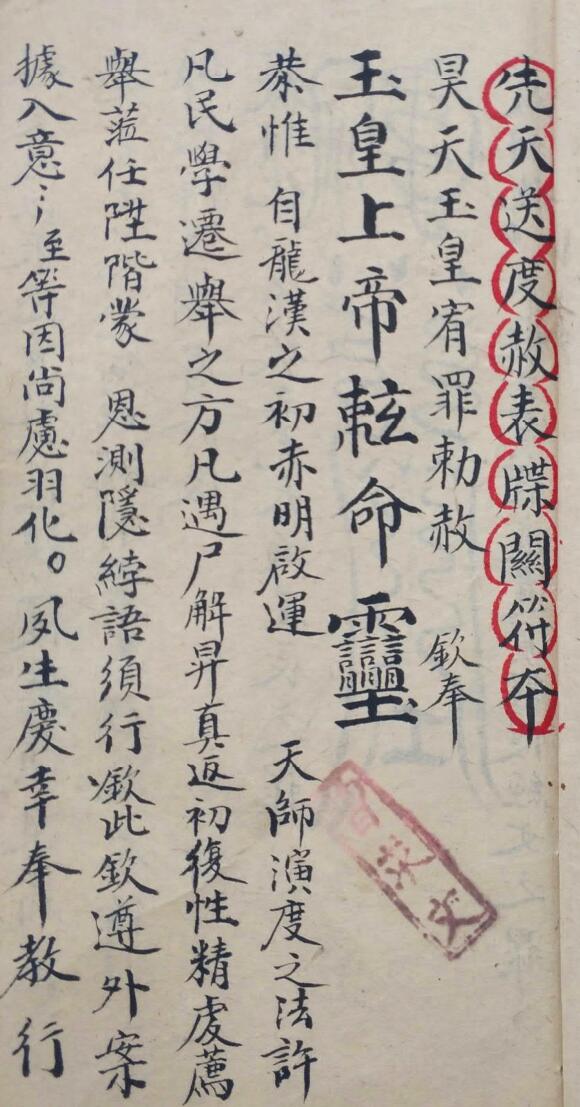 先天送度赦表牒關符本
昊天玉皇宥罪勅赦　欽奉
玉皇上帝勅命
恭惟　自龍漢之初赤明啟運　天師演度之法許
凡民學遷舉之方凡遇尸解昇真返初復性精虔薦
舉蒞任陞階蒙　恩測隱綍語須行欽此欽遵外案
據入意⋮至等因尚慮羽化。夙生慶幸奉教行